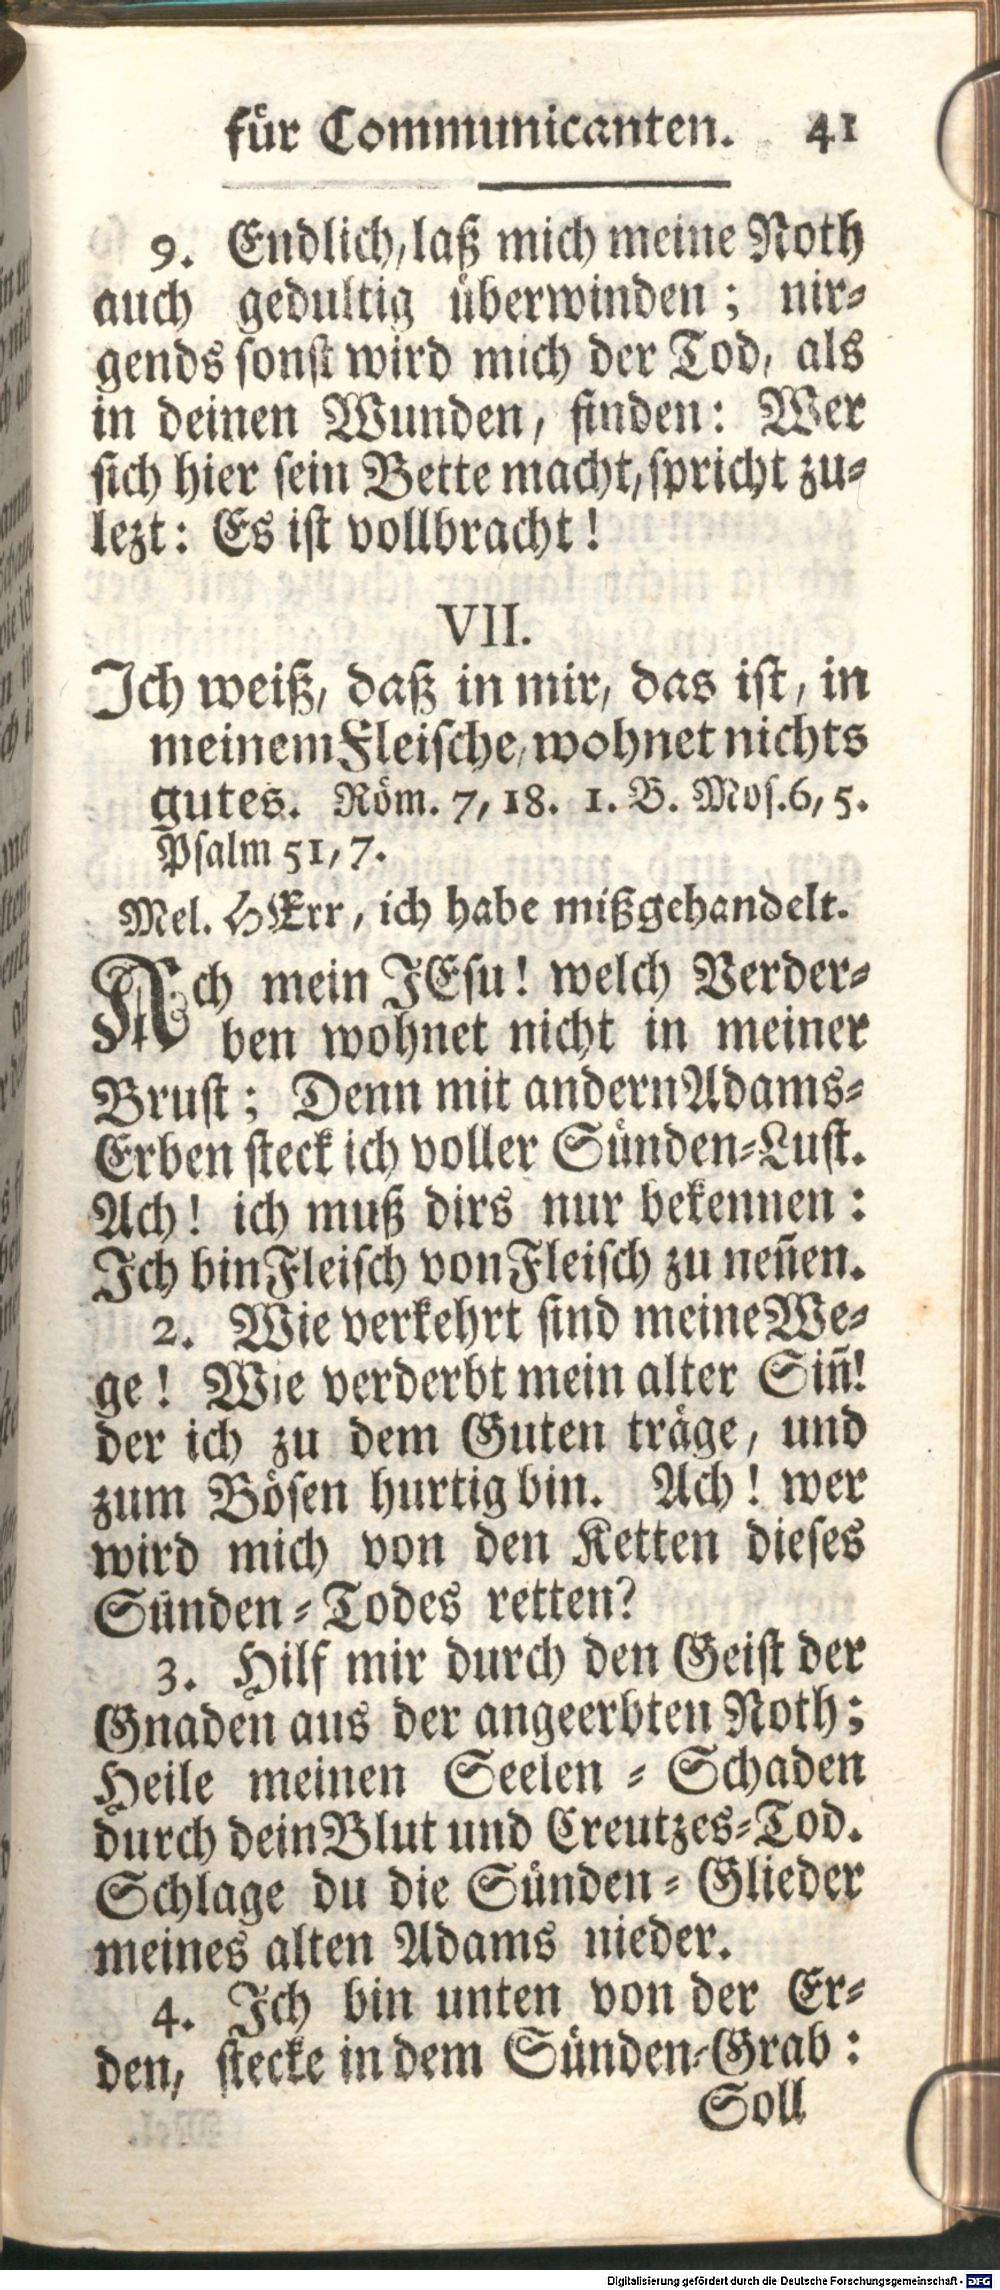 für Communicanten. 41
9. Endlich, laß mich meine Noth
auch gedultig überwinden; nir-
gends sonst wird mich der Tod, als
in deinen Wunden, finden: Wer
sich hier sein Bette macht, spricht zu-
lezt: Es ist vollbracht!
VII.
Ich weiß, daß in mir, das ist, in
meinem Fleische, wohnet nichts
gutes. Röm. 7, 18. 1. B. Mos. 6, 5.
Psalm 51, 7.
Mel. HErr, ich habe mißgehandelt.
Ach mein JEsu! welch Verder-
ben wohnet nicht in meiner
Brust; Denn mit andern Adams-
Erben steck ich voller Sünden-Lust.
Ach! ich muß dirs nur bekennen:
Ich bin Fleisch von Fleisch zu neñen.
2. Wie verkehrt sind meine We-
ge! Wie verderbt mein alter Siñ!
der ich zu dem Guten träge, und
zum Bösen hurtig bin. Ach! wer
wird mich von den Ketten dieses
Sünden-Todes retten?
3. Hilf mir durch den Geist der
Gnaden aus der angeerbten Noth;
Heile meinen Seelen-Schaden
durch dein Blut und Creutzes-Tod.
Schlage du die Sünden-Glieder
meines alten Adams nieder.
4. Ich bin unten von der Er-
den, stecke in dem Sünden-Grab:
Soll
Digitalisierung gefördert durch die Deutsche Forschungsgemeinschaft - DFG